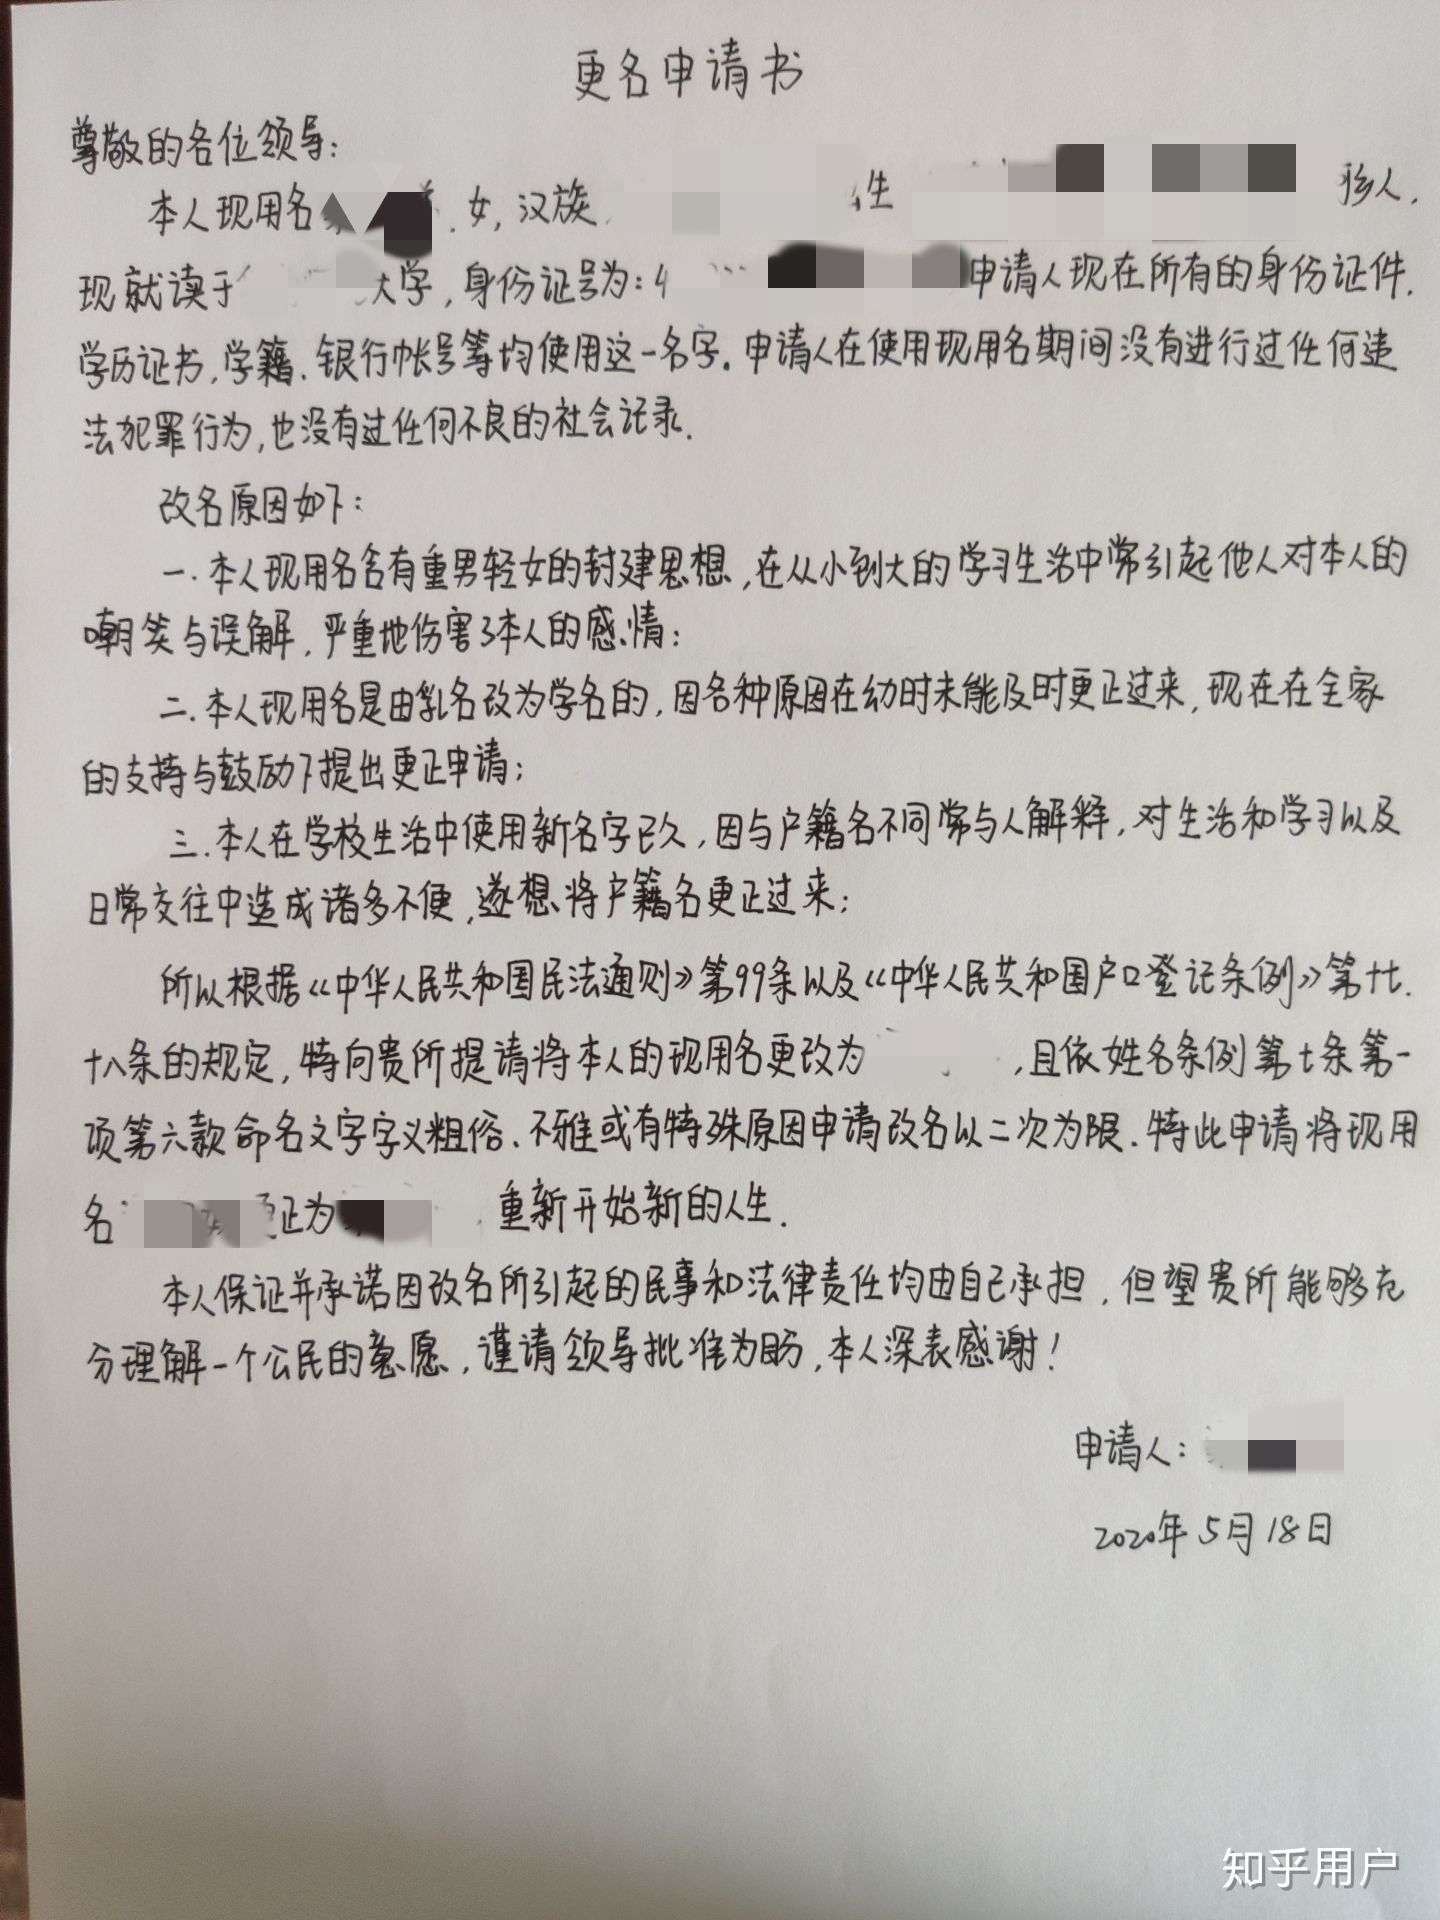 更名申请书
尊敬的各位领导:
本人现用名 女,汉族, 生 人,
现就读于 大学,身份证号为:4 申请人现在所有的身份证件.
学历证书,学籍.银行帐号等均使用这一名字.申请人在使用现用名期间没有进行过任何违
法犯罪行为,也没有过任何不良的社会记录.
改名原因如下:
一.本人现用名含有重男轻女的封建思想,在从小到大的学习生活中常引起他人对本人的
嘲笑与误解,严重地伤害了本人的感情;
二.本人现用名是由乳名改为学名的,因各种原因在幼时未能及时更正过来,现在在全家
的支持与鼓励下提出更正申请;
三.本人在学校生活中使用新名字已久,因与户籍名不同常与人解释,对生活和学习以及
日常交往中造成诸多不便,遂想将户籍名更正过来;
所以根据《中华人民共和国民法通则》第99条以及《中华人民共和国户口登记条例》第十七.
十八条的规定,特向贵所提请将本人的现用名更改为 ,且依姓名条例第七条第一
项第六款命名文字字义粗俗.不雅或有特殊原因申请改名以二次为限.特此申请将现用
名 更正为 重新开始新的人生.
本人保证并承诺因改名所引起的民事和法律责任均由自己承担,但望贵所能够充
分理解一个公民的意愿,谨请领导批准为盼,本人深表感谢!
申请人:
2020年5月18日
知乎用户